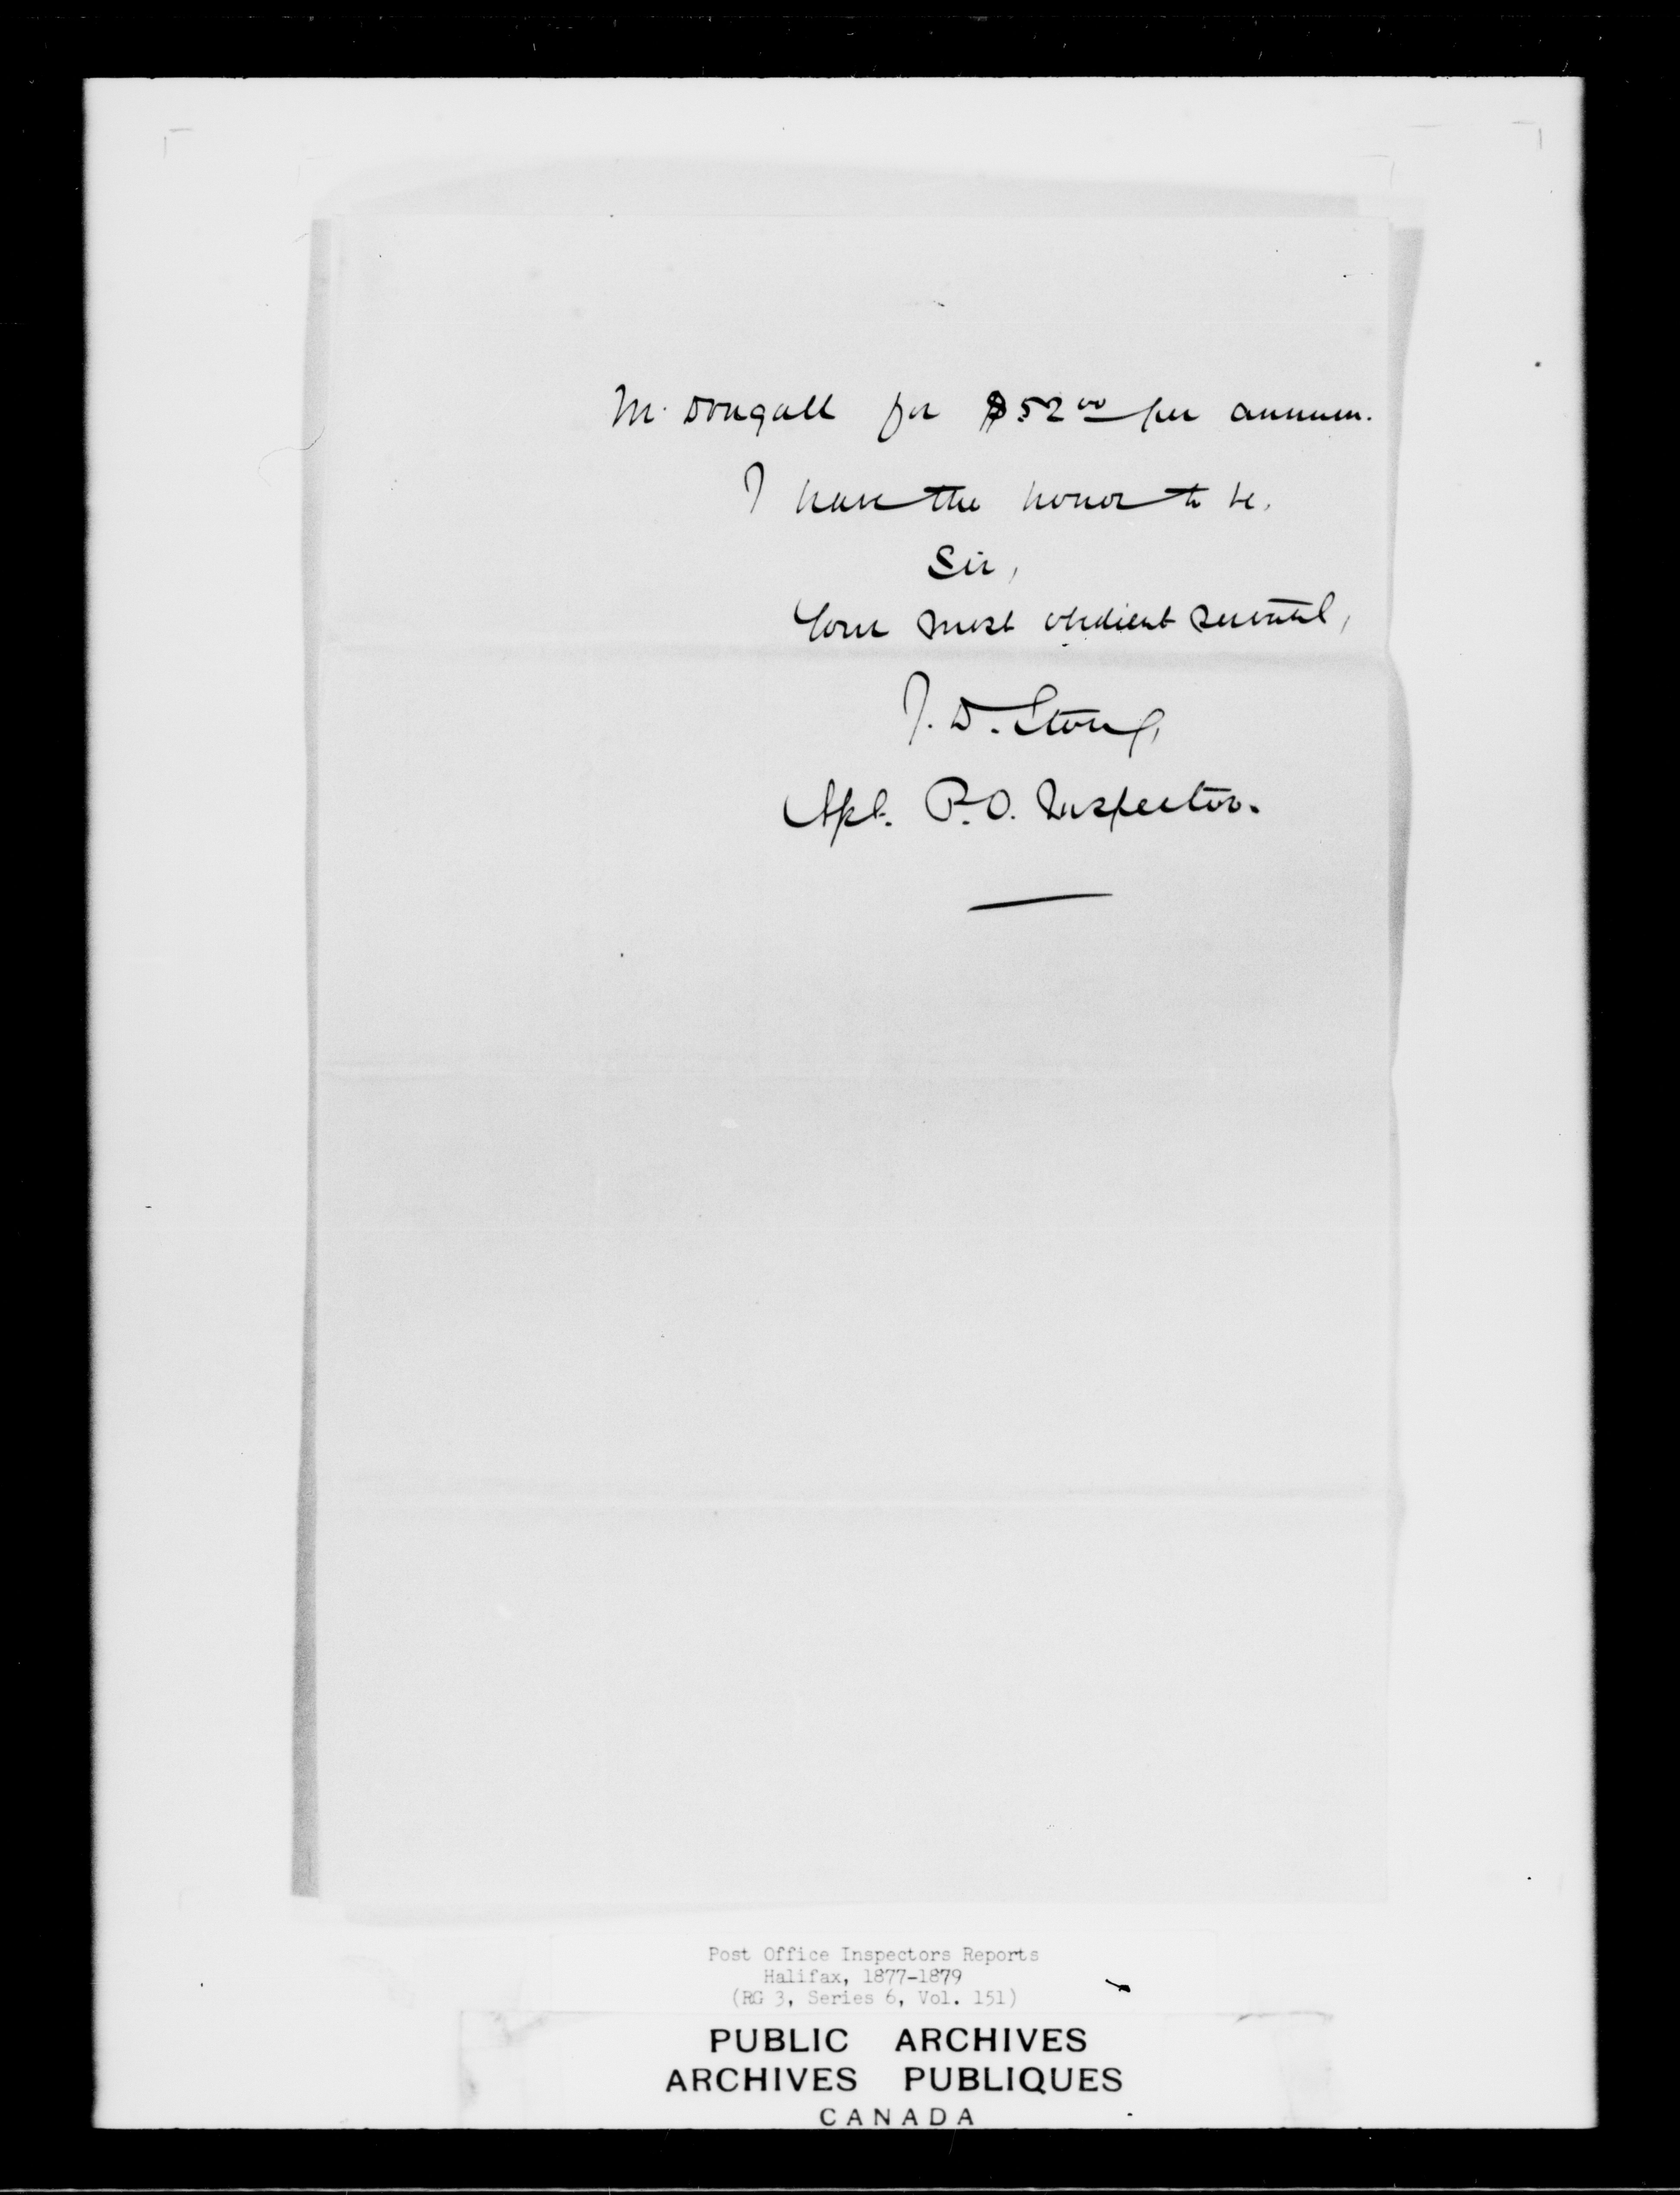 Mc Dougall for $52 00 per annum.
I have the honor to be,
Sir,
Your most obedient servant,
J. D. Story,
Asst. P.O. Inspector.
Post Office Inspectors Reports
Halifax, 1877-1879
(RG 3, Series 6, Vol. 151)
PUBLIC ARCHIVES
ARCHIVES PUBLIQUES
CANADA